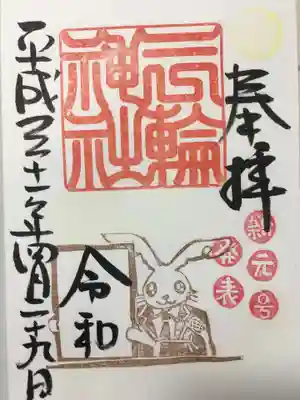 奉拝
三輪
神社
新元号
発表
令和
平成三十一年四月二十九日